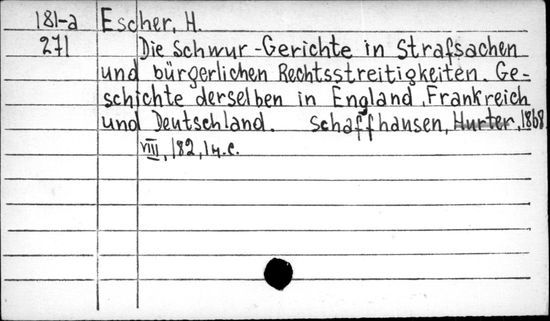 181-a Escher, H.
271 Die Schwur-Gerichte in Strafsachen
und bürgerlichen Rechtsstreitigkeiten. Ge-
schichte derselben in England, Frankreich
und Deutschland. Schaffhausen, Hurter, 1868.
VIII, 182, 1 н.с.